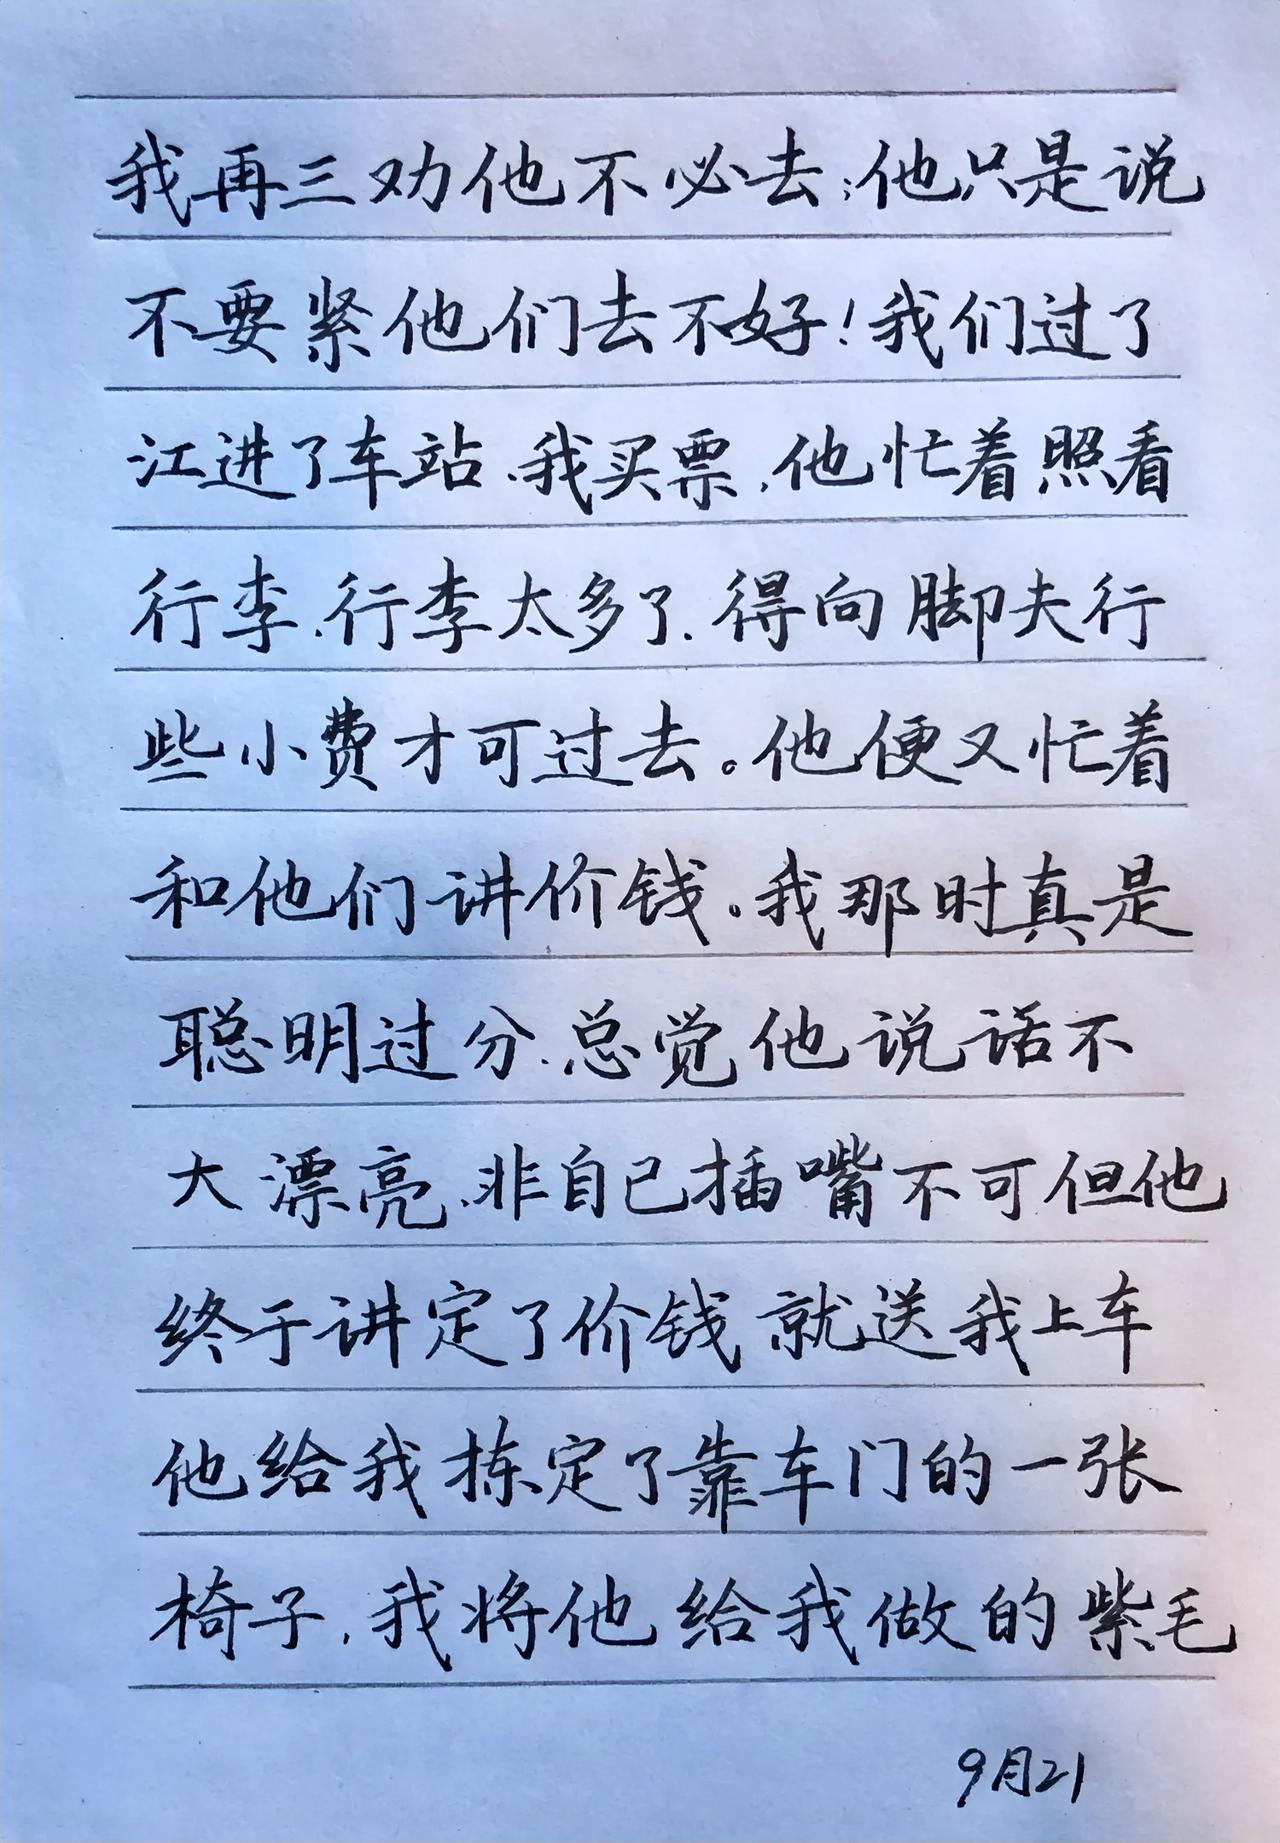 我再三劝他不必去；他只是说
不要紧他们去不好！我们过了
江进了车站、我买票，他忙着照看
行李、行李太多了、得向脚夫行
些小费才可过去。他便又忙着
和他们讲价钱。我那时真是
聪明过分、总觉他说话不
大漂亮、非自己插嘴不可但他
终于讲定了价钱就送我上车
他给我拣定了靠车门的一张
椅子，我将他给我做的紫毛
9月21